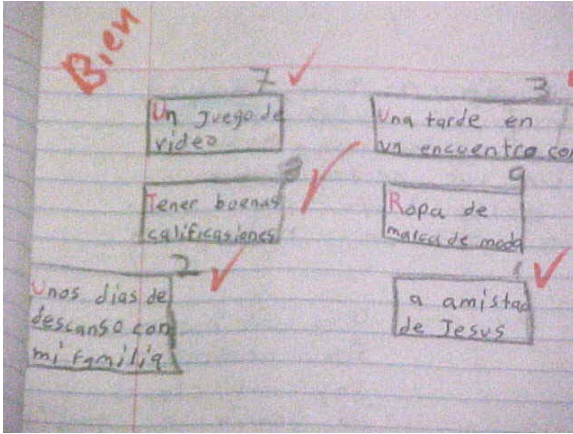 Bien
7
Un Juego de
video
3
Una tarde en
un encuentro con
8
Tener buenas
calificasiones
9
Ropa de
marca de moda
2
Unos dias de
descanso con
mi familia
1
a amistad
de Jesus